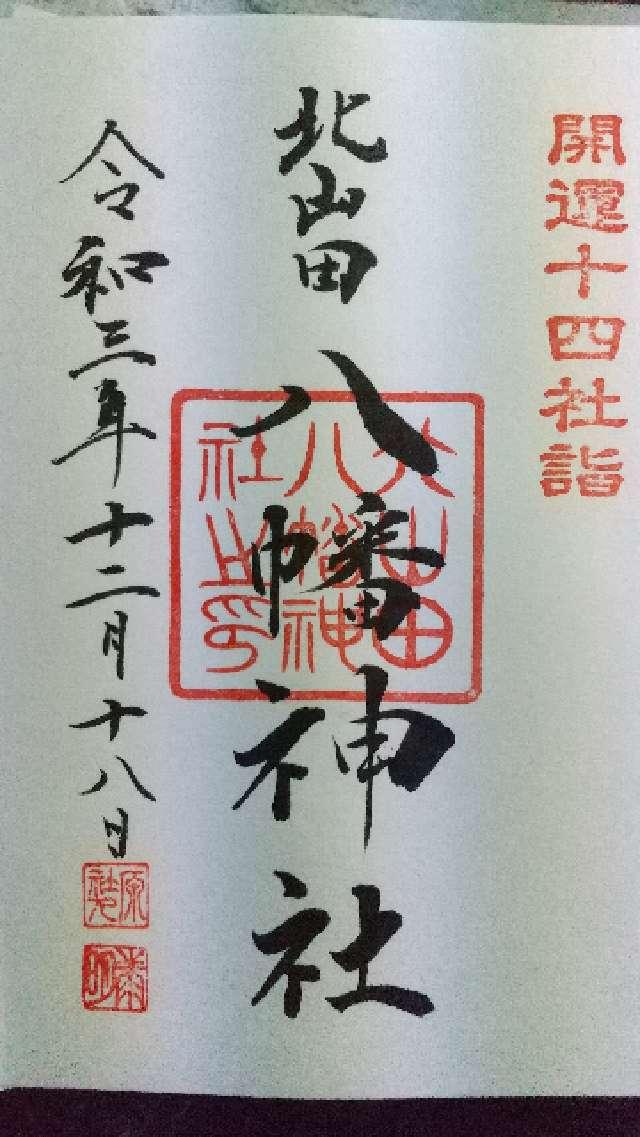 開運十四社詣
北山田
八幡神社
北山田
八幡神
社之印
令和三年十二月十八日